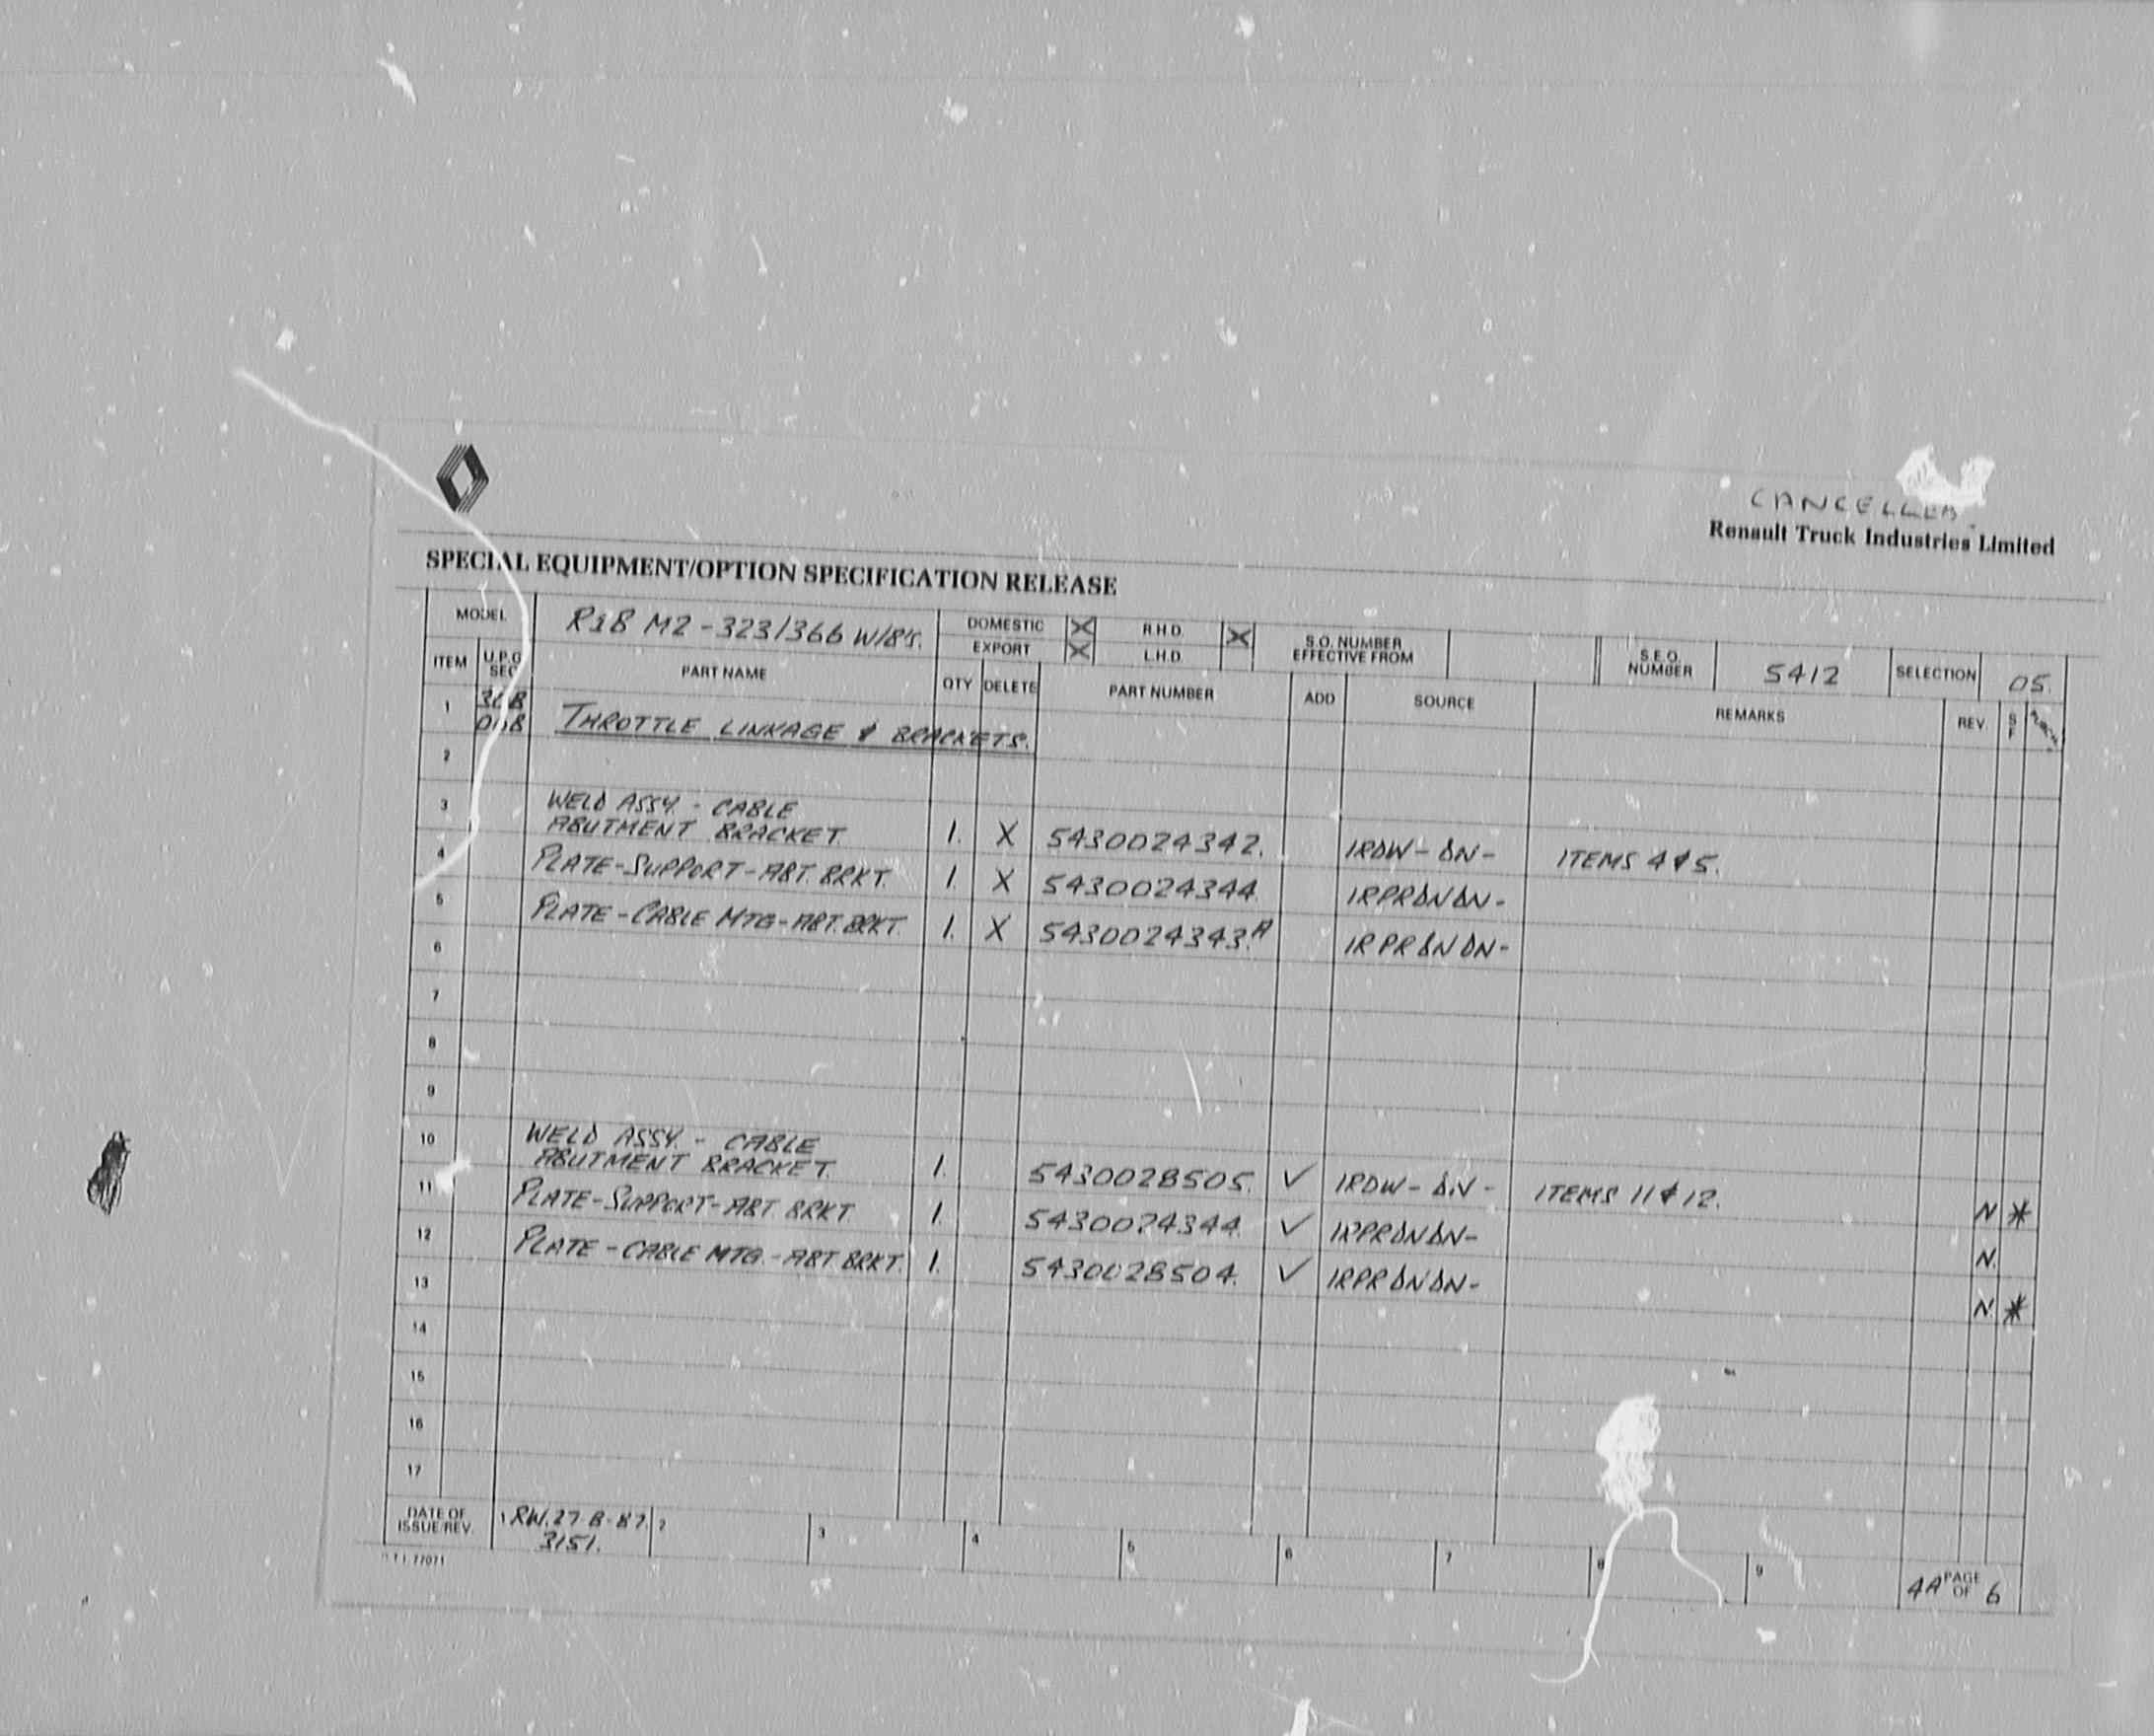 CANCELLED.
Renault Truck Industries Limited
SPECIAL EQUIPMENT/OPTION SPECIFICATION RELEASE
MODEL R18 M2-323/366 W/B'S. DOMESTIC X R.H.D. X S.O. NUMBER EFFECTIVE FROM S.E.O. NUMBER 5412 SELECTION 05.
EXPORT X L.H.D.
ITEM U.P.G SEC PART NAME QTY DELETE PART NUMBER ADD SOURCE REMARKS REV. S F
1 36B 00B THROTTLE LINKAGE & BRACKETS.
2
3 WELD ASSY. - CABLE
ABUTMENT BRACKET. 1. X 5430024342. IRDW-DN- ITEMS 4 & 5.
4 PLATE-SUPPORT-ABT. BRKT. 1. X 5430024344. IRPRDNDN-
5 PLATE-CABLE MTG-ABT. BRKT. 1. X 5430024343.A IRPRDNDN-
6
7
8
9
10 WELD ASSY. - CABLE
ABUTMENT BRACKET. 1. 5430028505. ✓ IRDW-DN- ITEMS 11 & 12. N *
11 PLATE-SUPPORT-ABT. BRKT. 1. 5430024344. ✓ IRPRDNDN- N.
12 PLATE-CABLE MTG.-ABT BRKT. 1. 5430028504. ✓ IRPRDNDN- N. *
13
14
15
16
17
DATE OF ISSUE/REV. 1 RW. 27-8-87. 2 3 4 5 6 7 8 9 4A PAGE OF 6
3151.
77071